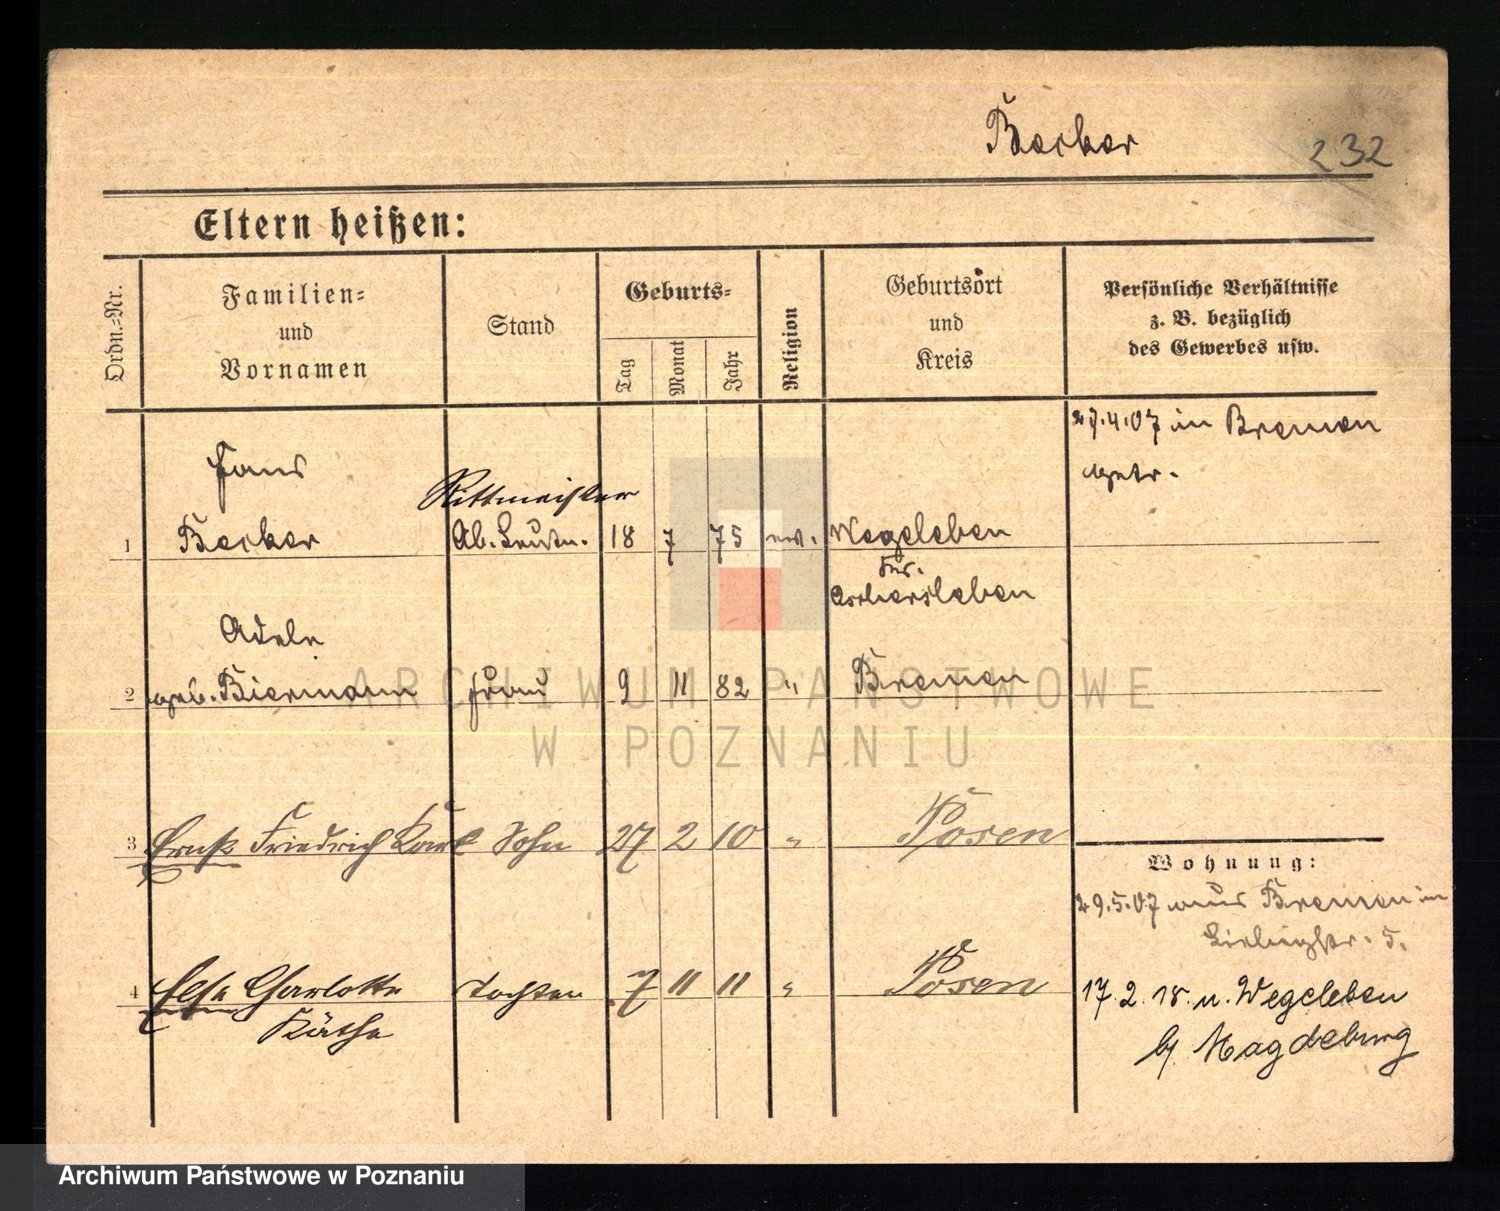 Becker
232
Eltern heißen:
Ordn.-Nr.
Familien-
und
Vornamen
Stand
Geburts-
Tag
Monat
Jahr
Religion
Geburtsort
und
Kreis
Persönliche Verhältnisse
z. B. bezüglich
des Gewerbes usw.
27.4.07 in Bremen
getr.
Hans
Rittmeister
1 Becker 18 7 75 ev. Wegeleben
Aschersleben
Adele
2 geb. Biermann Frau 9 11 82 " Bremen
3 Ernst Friedrich Karl Sohn 27 2 10 " Posen
Wohnung:
29.5.07 aus Bremen in
5.
4 Else Charlotte Tochter 7 11 11 " Posen
Käthe
17.2.18. n. Wegeleben
b/ Magdeburg
ARCHIWUM PAŃSTWOWE
W POZNANIU
Archiwum Państwowe w Poznaniu